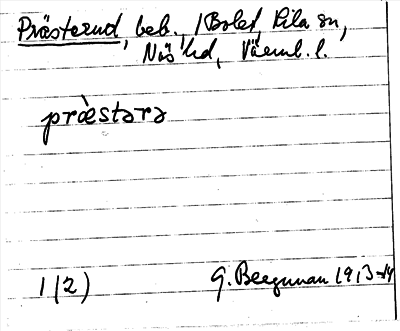 Prästerud, beb., /Bolet, Kila sn,
Näs hd, Värml. l.
præ̀stərə
1(2)
G. Bergman 1913-14